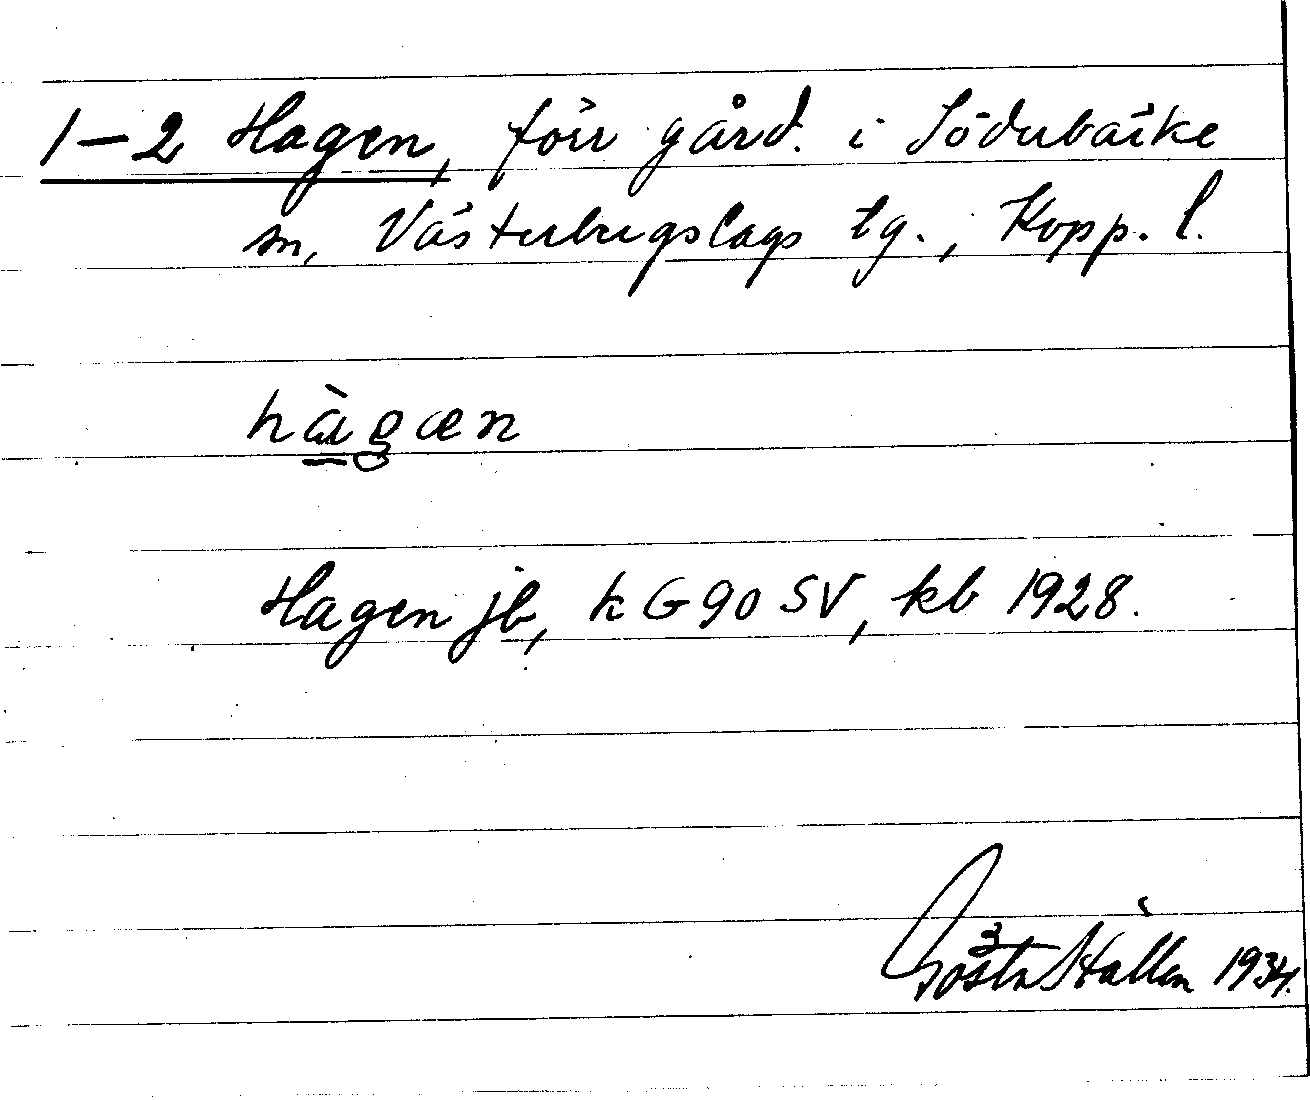 1–2 Hagen, förr gård. i Söderbärke
sn, Västerbergslags tg., Kopp. l.
hàgæn
Hagen jb, k G 90 SV, kb 1928.
Gösta Hállen 1934.